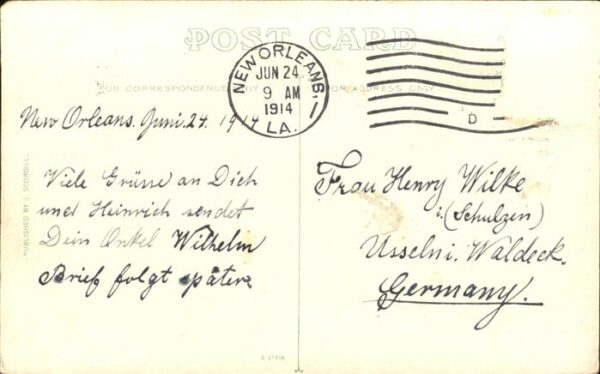 POST CARD
FOR CORRESPONDENCE ONLY
FOR ADDRESS ONLY
NEW ORLEANS,
JUN 24
9 AM
1914
LA.
D
New Orleans. Juni. 24. 1914
Viele Grüsse an Dich
und Heinrich sendet
Dein Onkel Wilhelm
Brief folgt später.
Frau Henry Wilke
i. (Schulzen)
Usseln i. Waldeck.
Germany.
PUBLISHED BY J. SCORDILL.